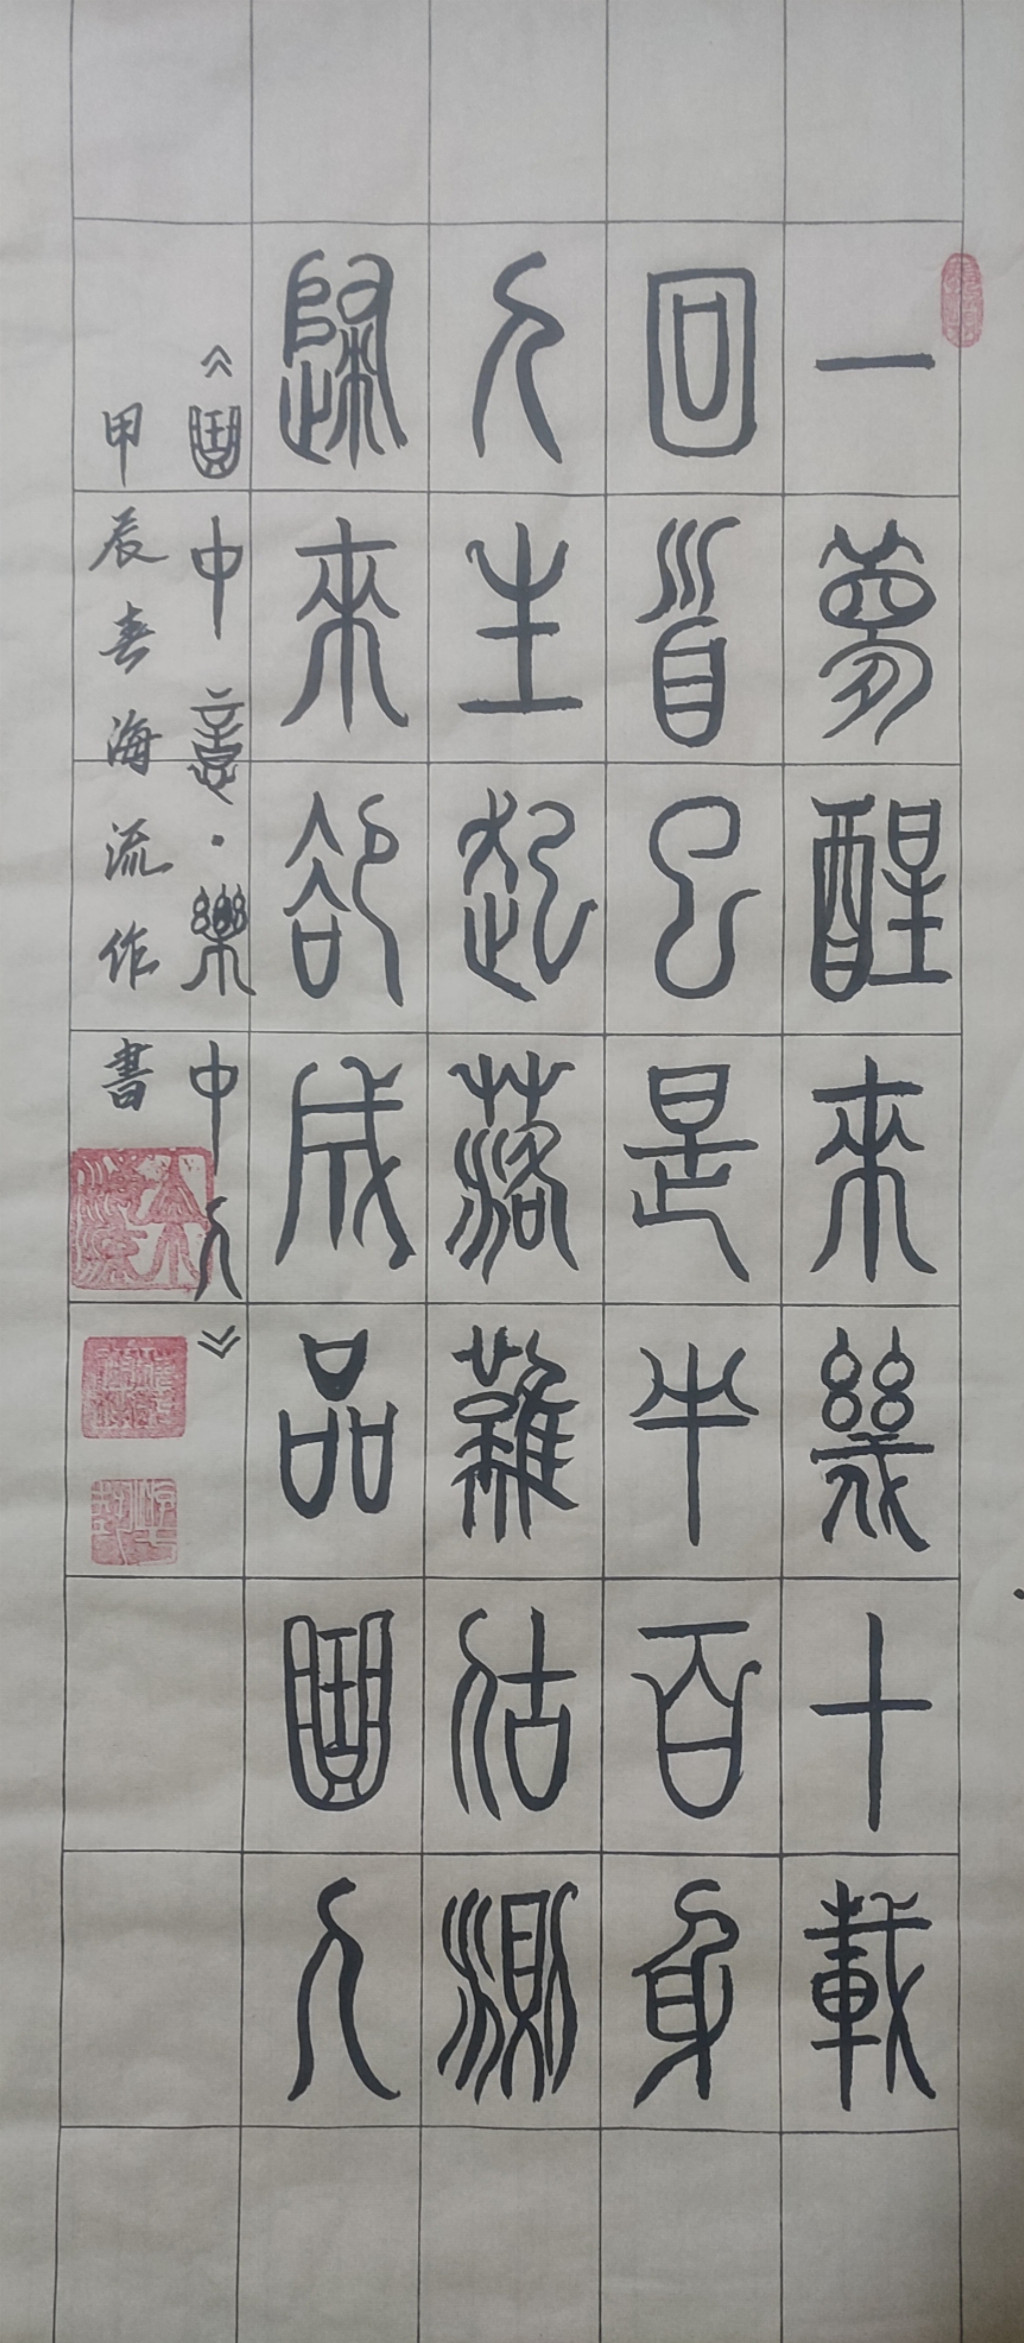 一夢醒來幾十載
回首已是半百身
人生起落難沽測
歸來卻成品圖人
《圖中意·樂中人》
甲辰春海流作書